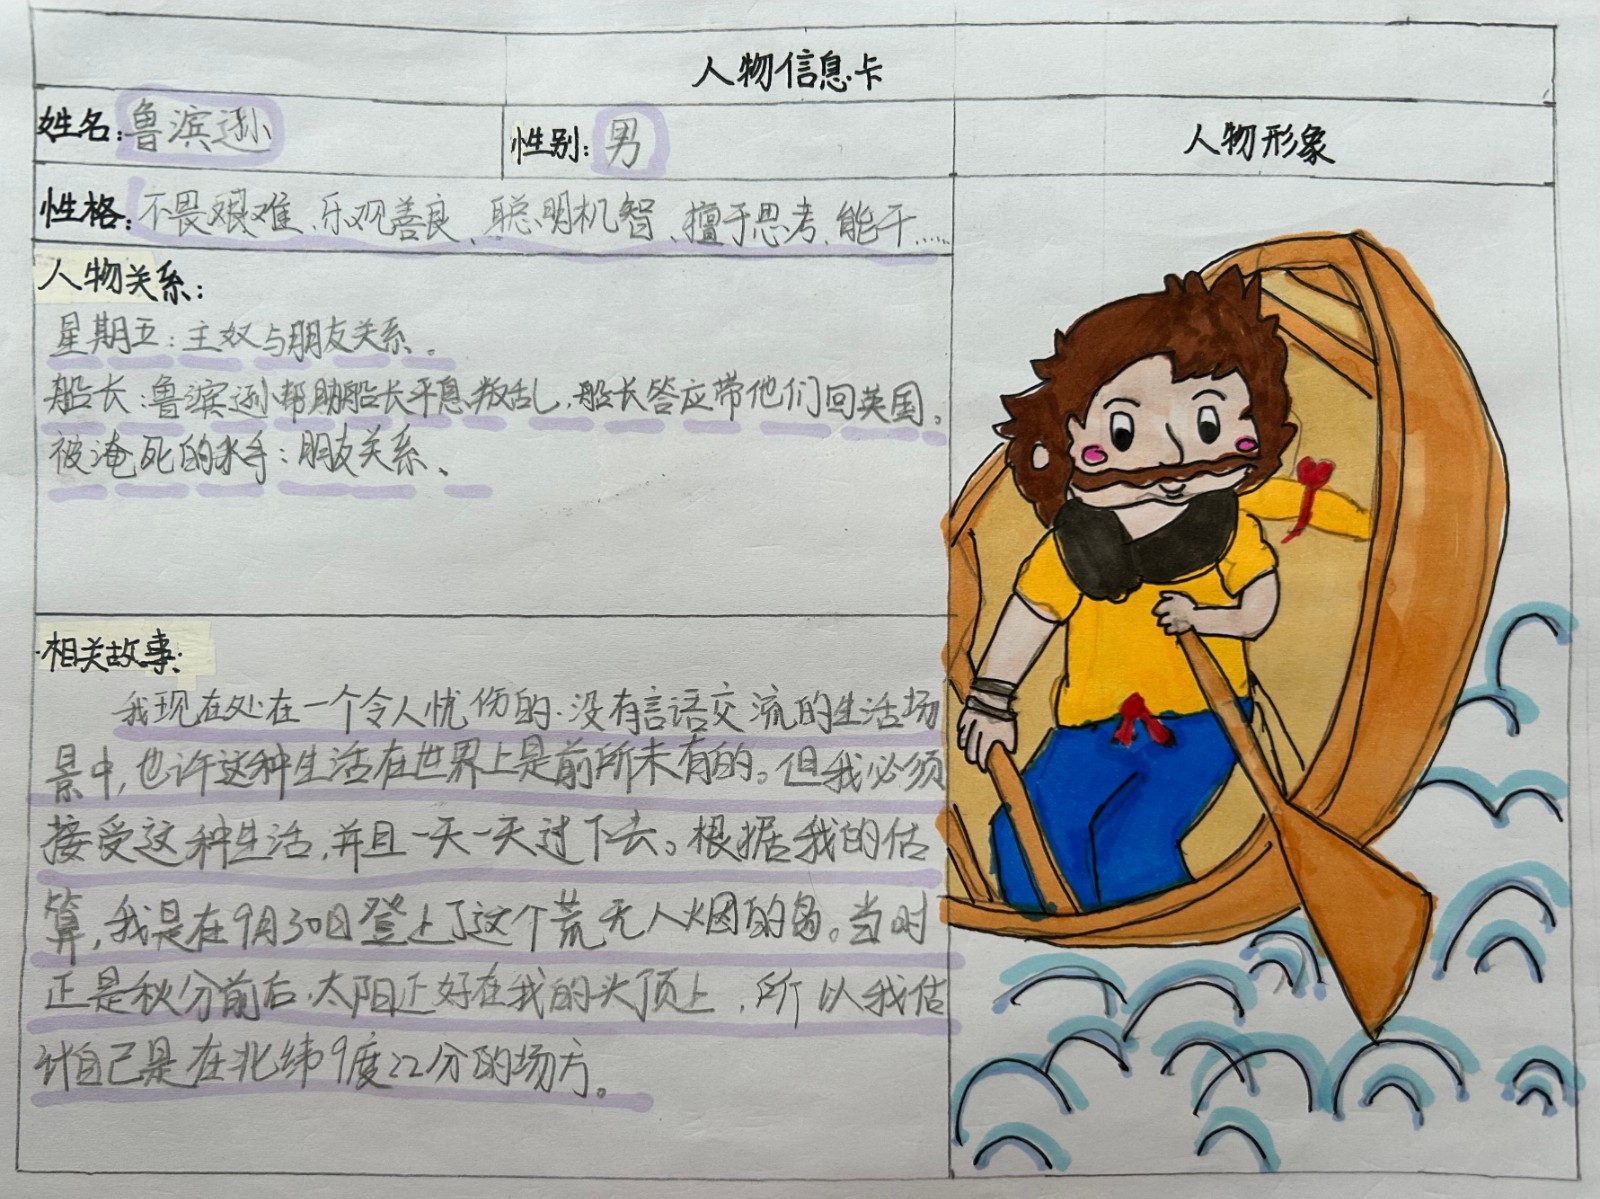 人物信息卡
姓名：鲁滨逊
性别：男
人物形象
性格：不畏艰难、乐观善良、聪明机智、擅于思考、能干……
人物关系：
星期五：主奴与朋友关系。
船长：鲁滨逊帮助船长平息叛乱，船长答应带他们回英国。
被淹死的水手：朋友关系、
相关故事：
我现在处在一个令人忧伤的.没有言语交流的生活场
景中，也许这种生活在世界上是前所未有的。但我必须
接受这种生活，并且一天一天过下去。根据我的估
算，我是在9月30日登上了这个荒无人烟的岛。当时
正是秋分前后.太阳正好在我的头顶上，所以我估
计自己是在北纬9度22分的场方。